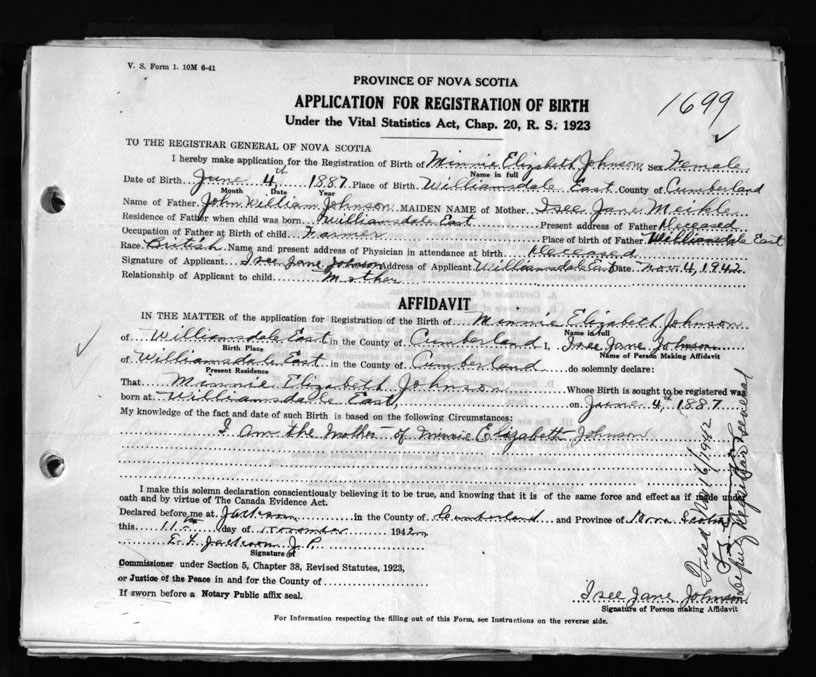 V. S. Form 1. 10M 6-41
PROVINCE OF NOVA SCOTIA
1699
APPLICATION FOR REGISTRATION OF BIRTH
Under the Vital Statistics Act, Chap. 20, R. S. 1923
TO THE REGISTRAR GENERAL OF NOVA SCOTIA
I hereby make application for the Registration of Birth of Minnie Elizabeth Johnson, Sex Female
Name in full
Date of Birth June 4th 1887. Place of Birth Williamsdale East County of Cumberland
Month Date Year
Name of Father John William Johnson MAIDEN NAME of Mother Isee Jane Meikle
Residence of Father when child was born Williamsdale East Present address of Father Deceased
Occupation of Father at Birth of child Farmer Place of birth of Father Williamsdale East
Race British Name and present address of Physician in attendance at birth Deceased
Signature of Applicant Isee Jane Johnson Address of Applicant Williamsdale East Date Nov. 4, 1942
Relationship of Applicant to child Mother
AFFIDAVIT
IN THE MATTER of the application for Registration of the Birth of Minnie Elizabeth Johnson
Name in full
of Williamsdale East in the County of Cumberland I, Isee Jane Johnson
Birth Place Name of Person Making Affidavit
of Williamsdale East in the County of Cumberland do solemnly declare:
Present Residence
That Minnie Elizabeth Johnson Whose Birth is sought to be registered was
born at Williamsdale East, on June 4th 1887
My knowledge of the fact and date of such Birth is based on the following Circumstances:
I am the Mother of Minnie Elizabeth Johnson
I make this solemn declaration conscientiously believing it to be true, and knowing that it is of the same force and effect as if made under
oath and by virtue of The Canada Evidence Act.
Declared before me at Jackson in the County of Cumberland and Province of Nova Scotia
this 11th day of November 1942
E. F. Jackson J. P.
Signature of
Commissioner under Section 5, Chapter 38, Revised Statutes, 1923,
or Justice of the Peace in and for the County of
If sworn before a Notary Public affix seal.
Isee Jane Johnson
Signature of Person making Affidavit
For Information respecting the filling out of this Form, see Instructions on the reverse side.
Filed Nov 16/1942
Deputy Registrar General